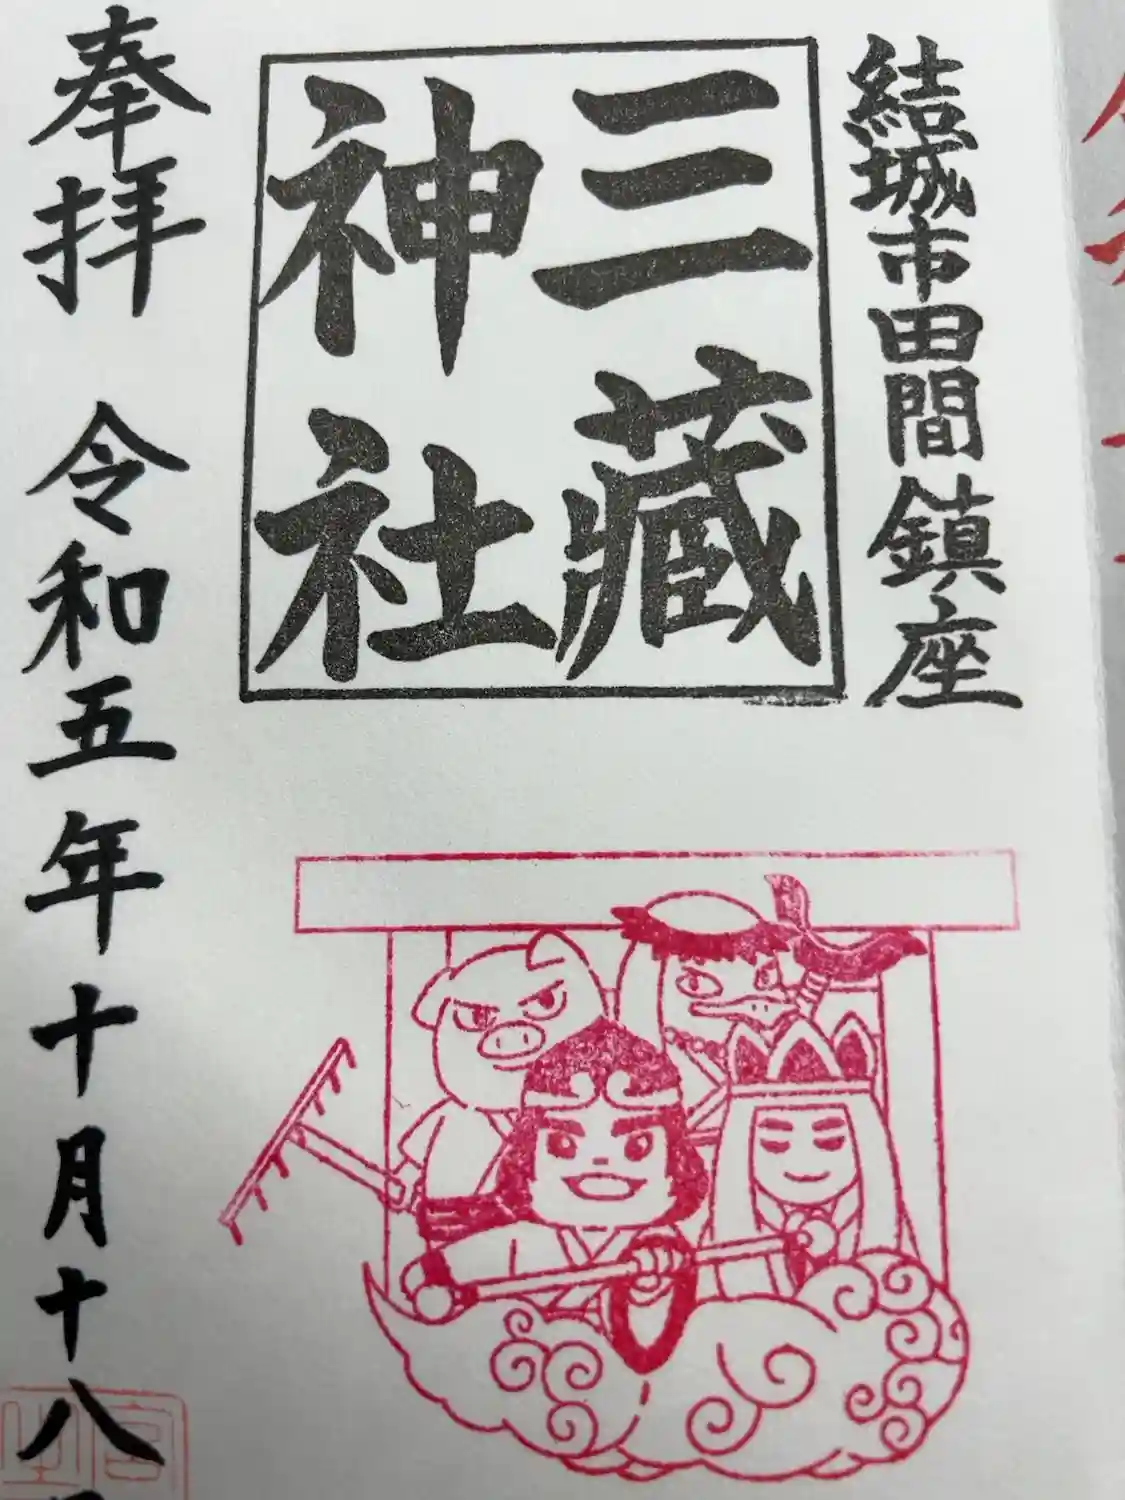 結城市田間鎮座
三蔵
神社
奉拝 令和五年十月十八